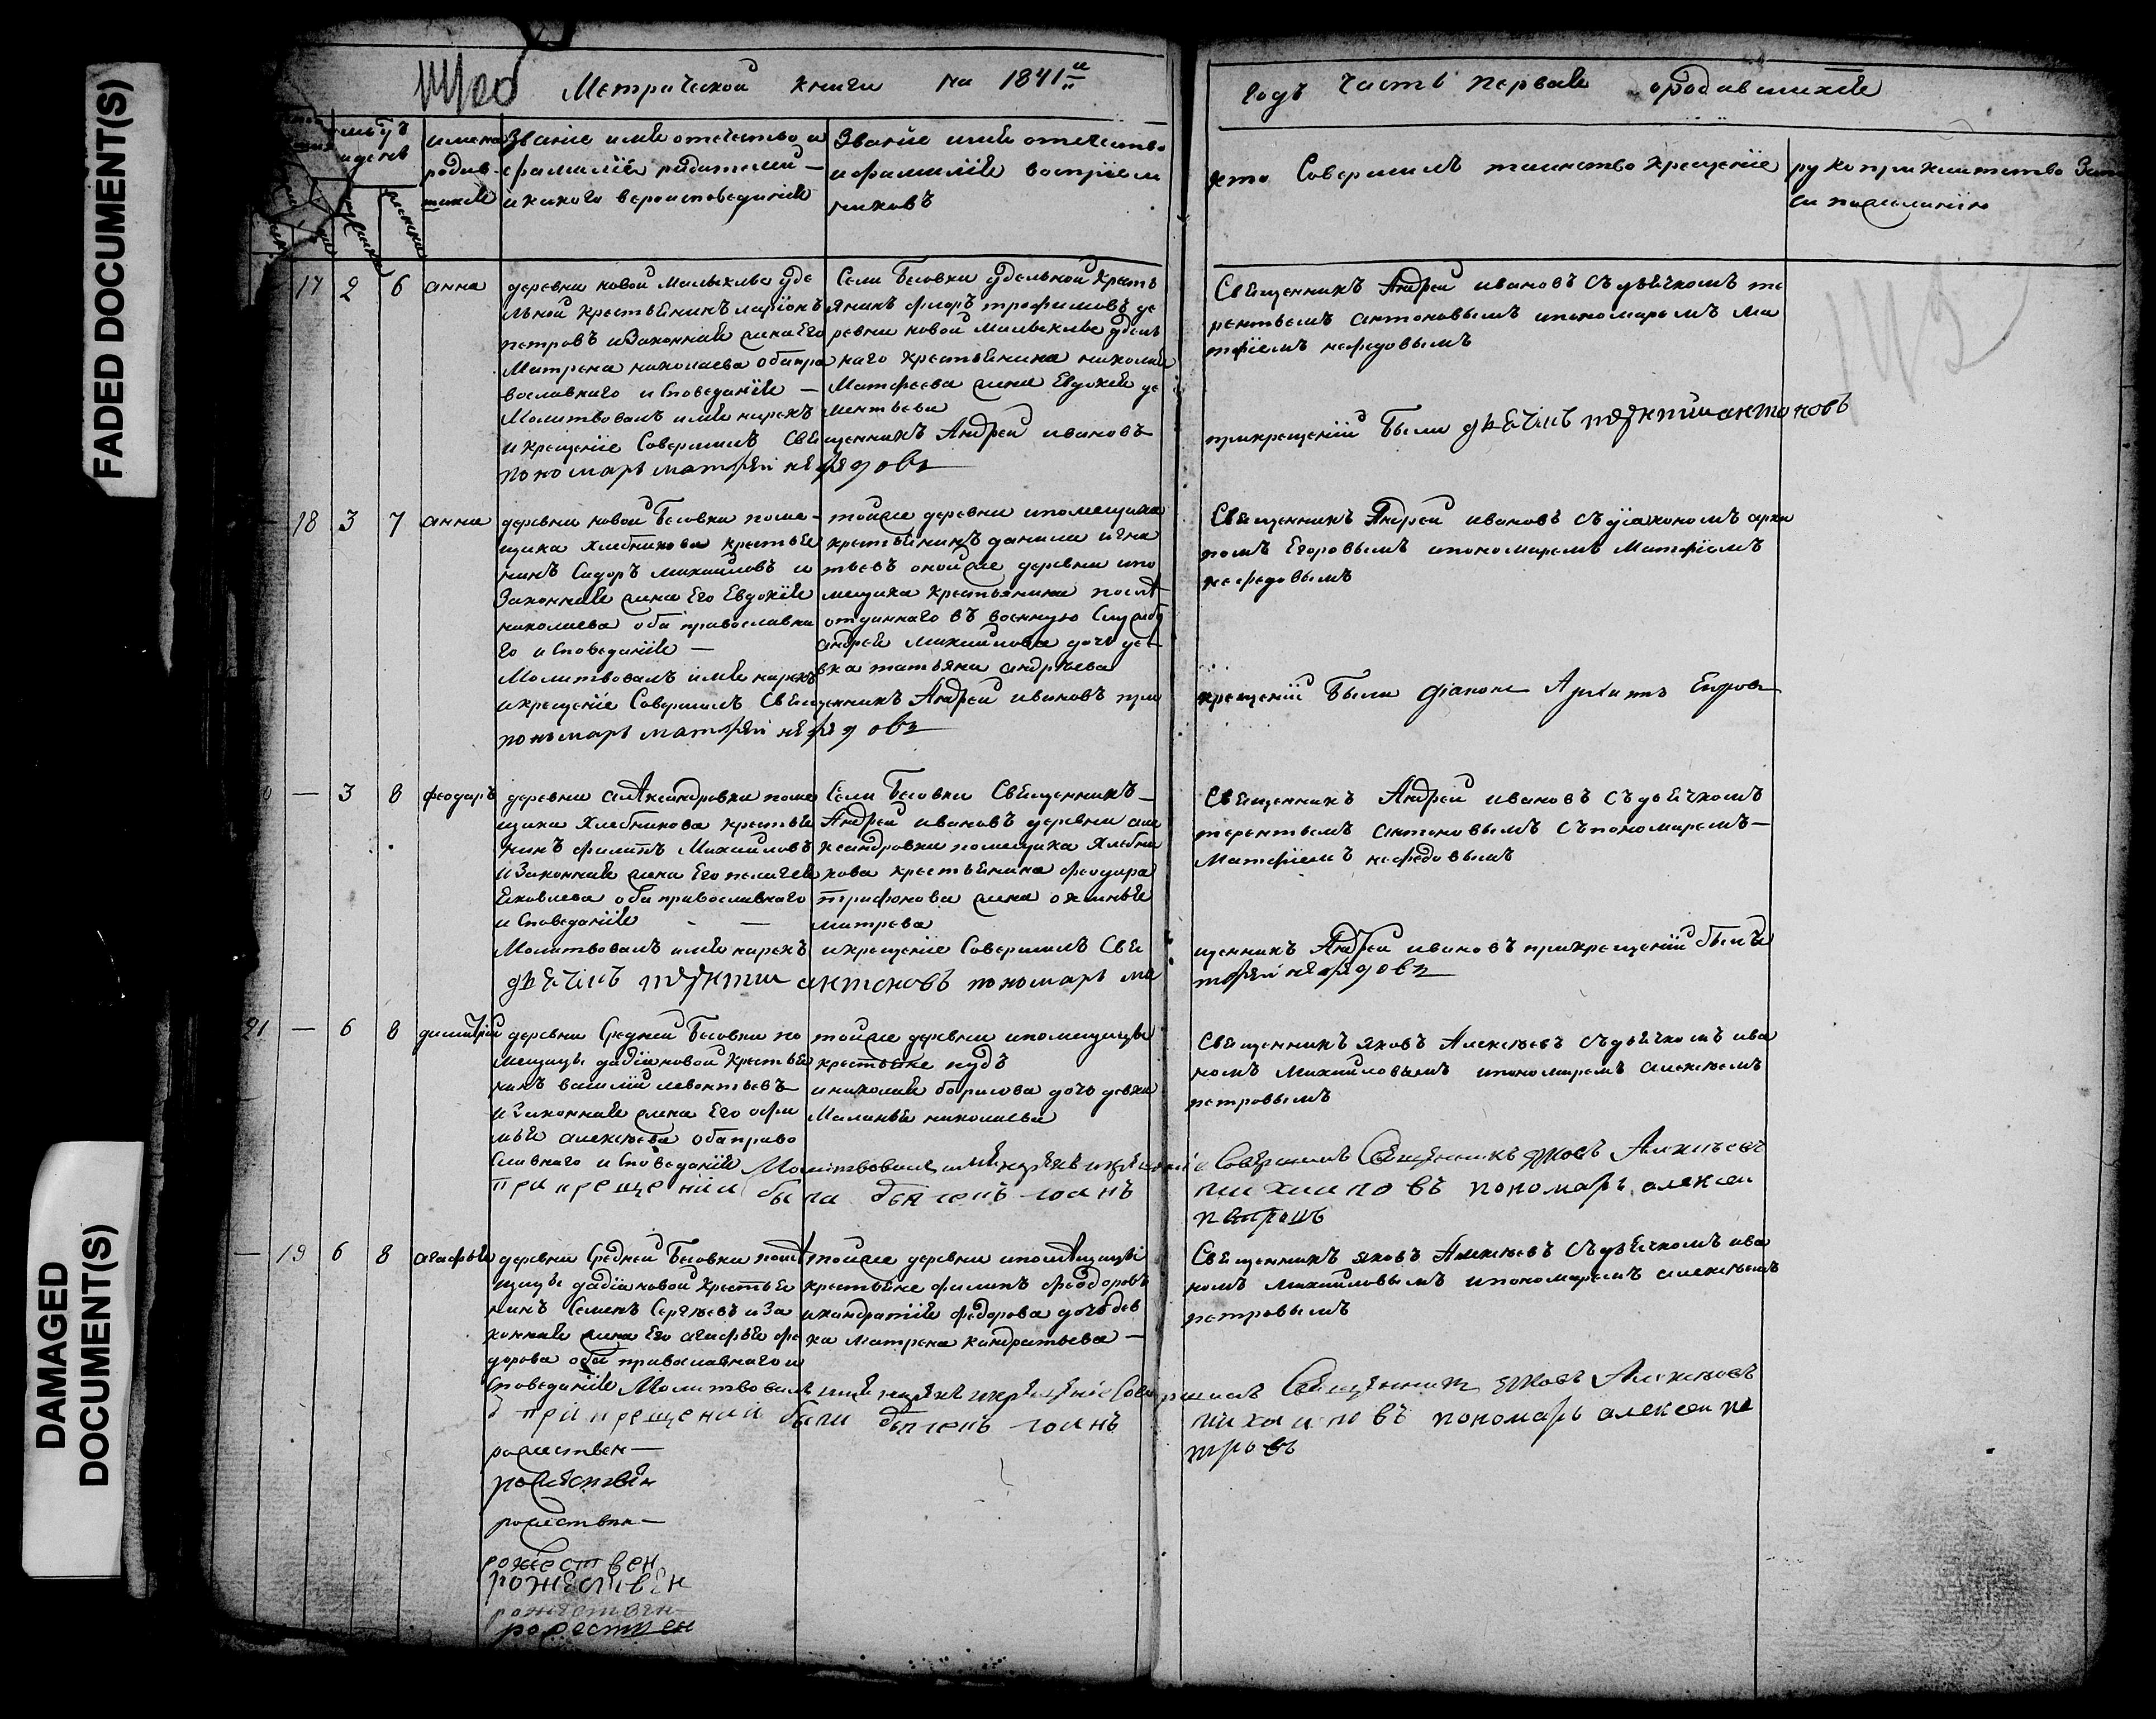 FADED DOCUMENT(S)
DAMAGED
DOCUMENT(S)
Метрической книги на 1841й
годъ часть первая о родившихся
имена
родив
шихся
Званіе имя отечество и
фамилія родителей
и какого вероисповеданія
Званіе имя отечество
и фамилія воспріем
никовъ
кто Совершилъ таинство крещенія
рукоприкладство
си по желанію
17 2 6 анна
деревни новой Малыклы уде
льной крестьянинъ ларіонъ
петровъ и Законная жена Его
Матрена николаева оба пра
вославного исповеданія —
Молитвовалъ имя нарекъ
и крещеніе Совершилъ Священникъ Андрей ивановъ
пономарь матфей нефедовъ
Села Бесовки удельной кресть
янинъ флоръ трофимовъ де
ревни новой Малыклы удель
наго крестьянина николая
Матфеева жена Евдокея де
ментьева
Священникъ Андрей ивановъ съ дьячкомъ те
рентьемъ антоновымъ и пономаремъ Ма
тфіемъ нефедовымъ
при крещеніи Были дьячикъ терентии антоновъ
18 3 7 анна
деревни новой Бесовки поме
щика Хлебникова крестья
нинъ Сидоръ михайловъ и
Законная жена Его Евдокія
николаева оба православна
го исповеданія —
Молитвовалъ имя нарекъ
и крещеніе Совершилъ Священникъ Андрей ивановъ при
пономарь матфей нефедовъ
тойже деревни и помещика
крестьянинъ данила игна
тьевъ онойже деревни и по
мещика крестьянина после
отданнаго въ военную Службу
андрея михайлова дочь де
вка татьяна андреева
Священникъ Андрей ивановъ съ діакономъ архи
помъ Егоровымъ и пономаремъ Матфіемъ
нефедовымъ
крещеніи Были діаконъ Архипъ Егоровъ
— 3 8 феодаръ
деревни александровки поме
щика Хлебникова крестья
нинъ филипъ Михайловъ
и Законная жена Его пелагея
Яковлева оба православнаго
исповеданія
Молитвовалъ имя нарекъ и крещеніе Совершилъ Свя
дьячикъ терентии антоновъ пономарь ма
Села Бесовки Священникъ
Андрей ивановъ деревни але
ксандровки помещика Хлебни
кова крестьянина феодара
трифонова жена
митрева
Священникъ Андрей ивановъ съ дьячкомъ
терентьемъ антоновымъ съ пономаремъ
Матфіемъ нефедовымъ
щенникъ Андрей ивановъ при крещеніи были
тфей нефедовъ
21 — 6 8 димитрій
деревни Средней Бесовки по
мещицы дадіановой крестья
нинъ василій левонтьевъ
и Законная жена Его
алексеева оба право
славнаго исповеданія Молитвовалъ имя нарекъ и крещеніе
при крещеніи были дьячекъ іоанъ
тойже деревни и помещицы
крестьяне
и николая борисова дочь девка
Маланья николаева
Священникъ яковъ Алексеевъ съ дьячкомъ ива
номъ Михайловымъ и пономаремъ алексеемъ
петровымъ
Совершилъ Священникъ яковъ Алексеевъ
михаиловъ пономарь алексеи
петровъ
— 19 6 8 агафья
деревни Средней Бесовки поме
щицы дадіановой крестья
нинъ Семенъ Сергеевъ и За
конная жена Его агафья фе
дорова оба православнаго и
споведанія Молитвовалъ имя нарекъ и крещеніе Сове
при крещеніи были дьячекъ іоанъ
тойже деревни и помещицы
крестьяне филипъ феодоровъ
и кандратія федорова дочь дев
ка матрена кандратьева
Священникъ яковъ Алексеевъ съ дьячкомъ ива
номъ михайловымъ и пономаремъ алексеемъ
петровымъ
ршилъ Священникъ яковъ Алексеевъ
михаиловъ пономарь алексеи пе
тровъ
рожествен
рожествен
рожествен
рожествен
рожествен
рожествен
рожествен